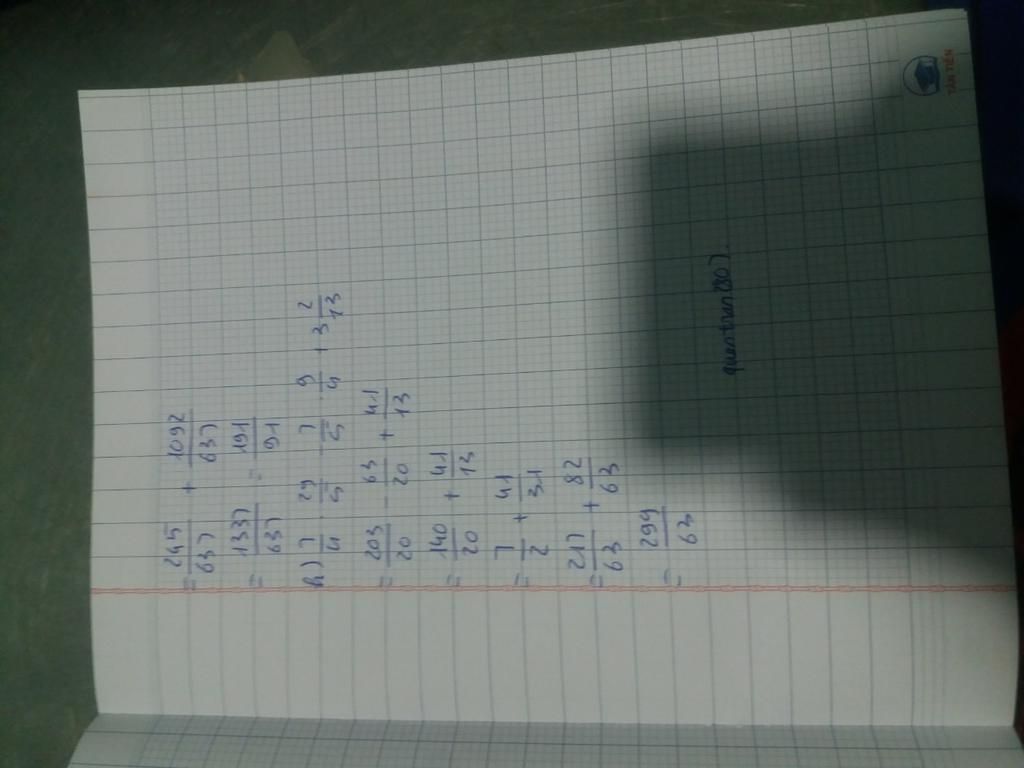 = 245/637 + 1092/637
= 1337/637 = 191/91
h) 7/4 . 29/5 - 7/5 . 9/4 + 3 2/13
= 203/20 - 63/20 + 41/13
= 140/20 + 41/13
= 7/2 + 41/31
= 217/63 + 82/63
= 299/63
TÂN TIẾN